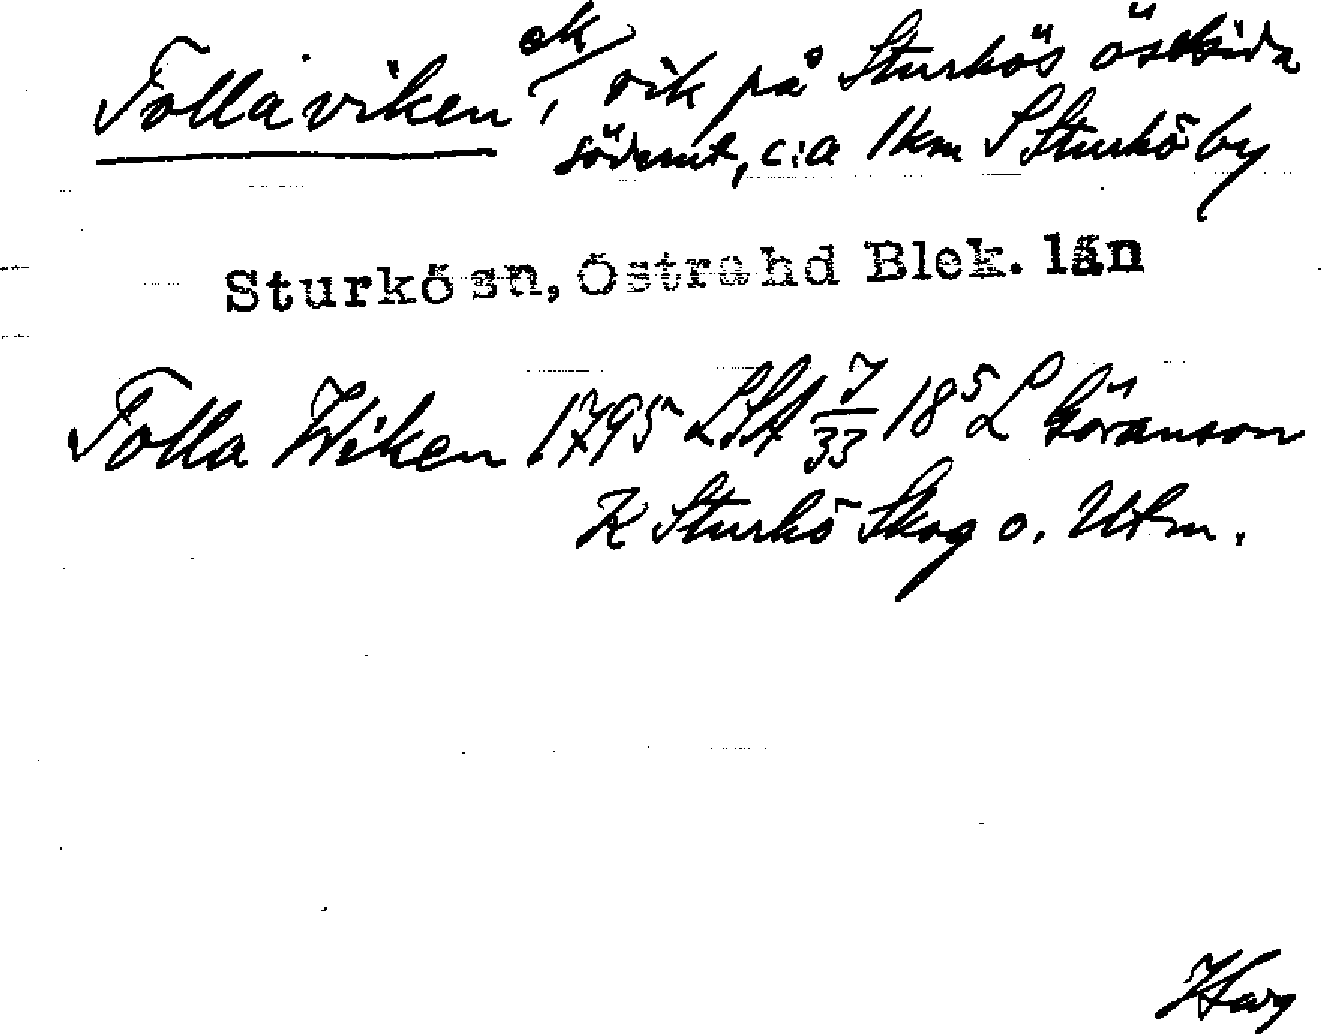 Tollaviken ek/, vik på Sturkös östsida
söderut, c:a 1 km S Sturkö by
Sturkö sn, Östra hd Blek. län
Tolla Wiken 1795 LSA 7/33 18⁵ L Göranson
K Sturkö Skog o. Utm.